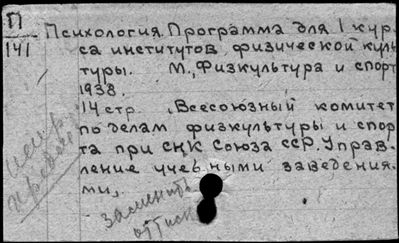 П
141
Психология. Программа для I кур-
са институтов физической куль
туры. М., Физкультура и спорт
1938.
14 стр. (Всесоюзный комитет
по делам физкультуры и спор
та при СНК Союза ССР. Управ-
ление учебными заведения-
ми).
заменить
оттиск